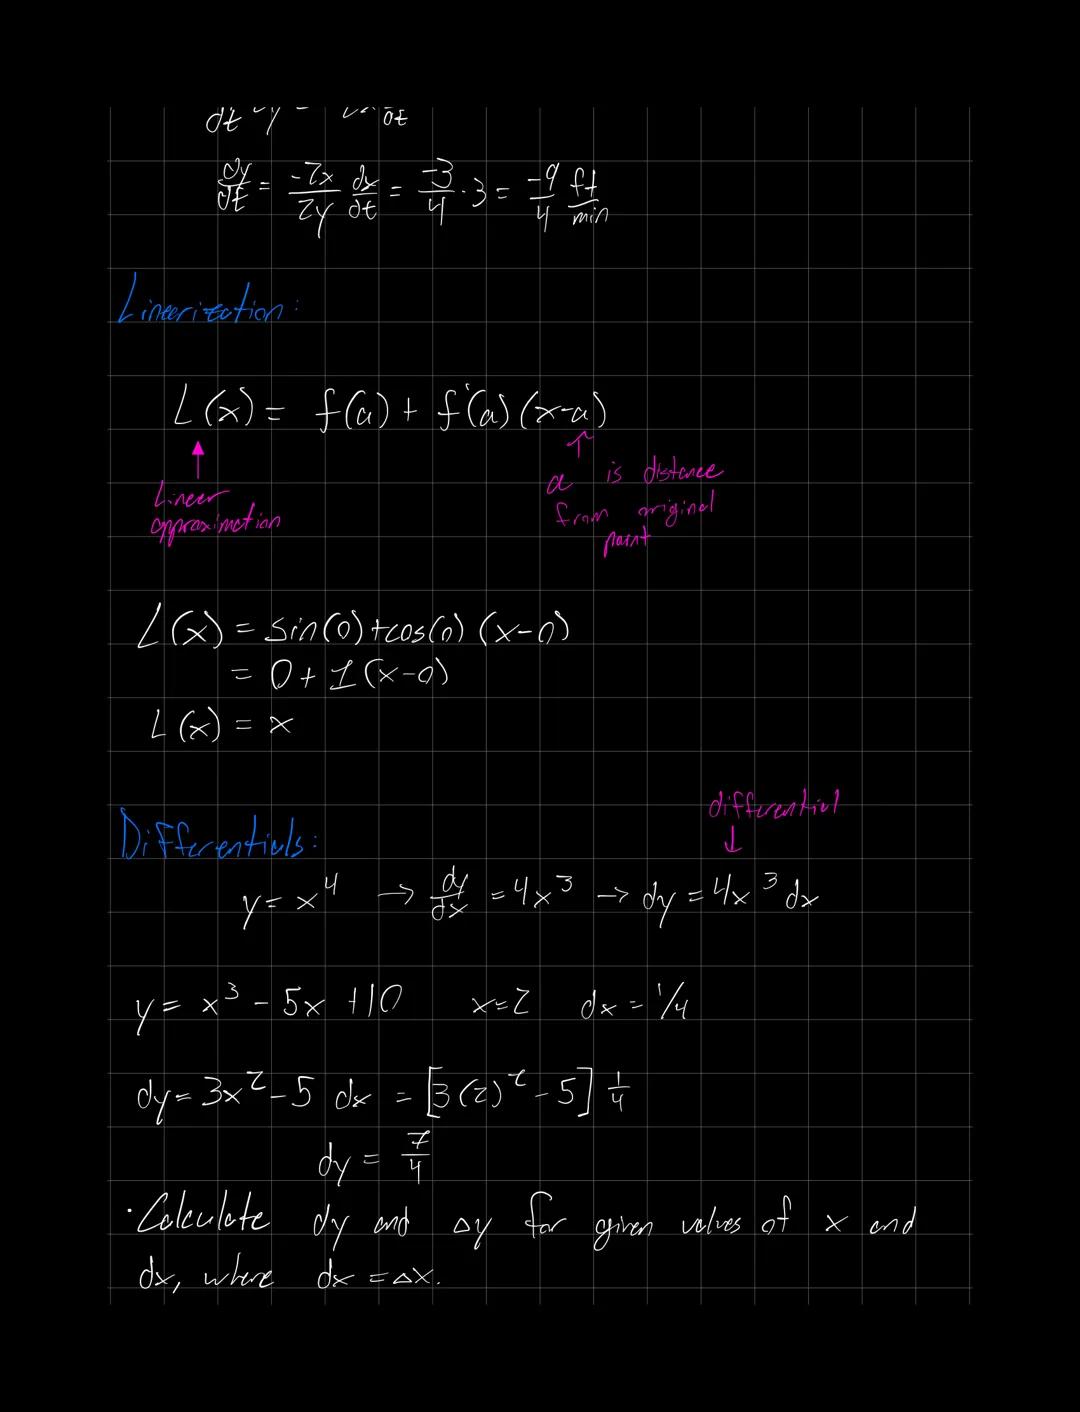 dy/dt = -2x/2y dx/dt = -3/4 · 3 = -9/4 ft/min
Linerization:
L(x) = f(a) + f'(a)(x-a)
Linear
approximation
a is distance
from original
point
L(x) = sin(0)+cos(0)(x-0)
= 0 + 1(x-0)
L(x) = x
differential
Differentials:
y = x⁴ → dy/dx = 4x³ → dy = 4x³ dx
y = x³ - 5x + 10 x=2 dx = 1/4
dy = 3x² - 5 dx = [3(2)² - 5] 1/4
dy = 7/4
· Calculate dy and Δy for given values of x and
dx, where dx = Δx.